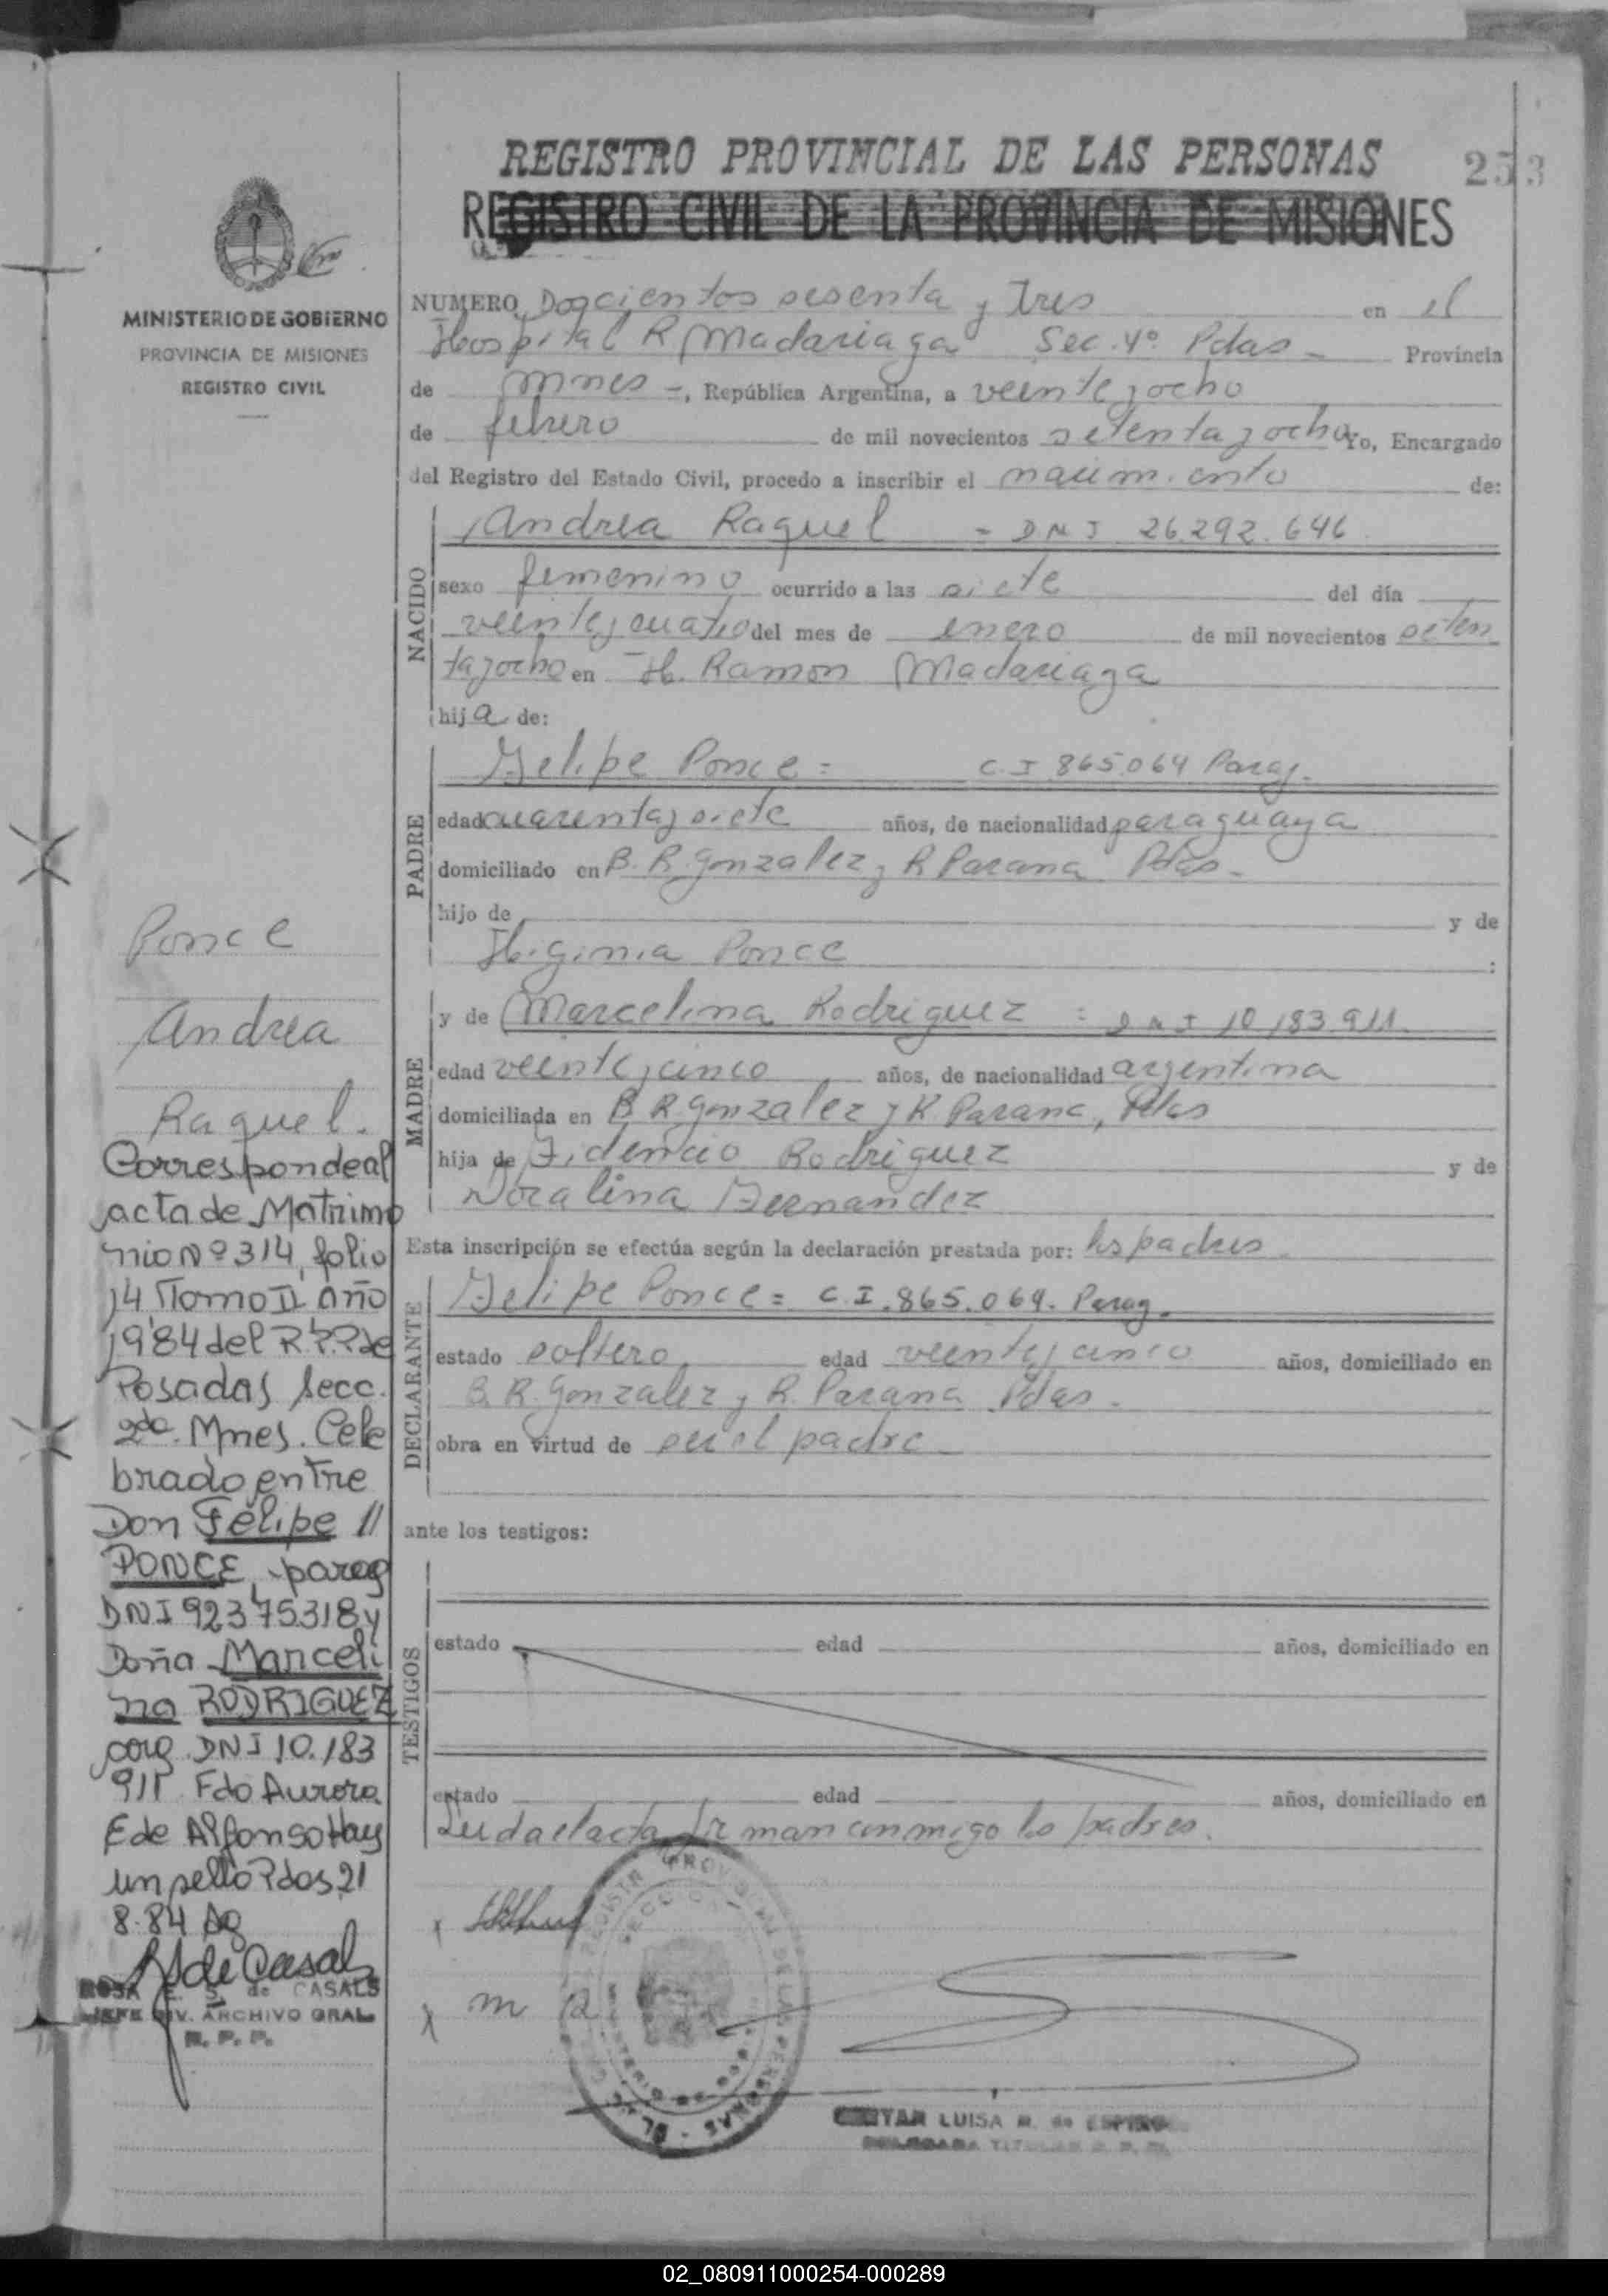 REGISTRO PROVINCIAL DE LAS PERSONAS
253
REGISTRO CIVIL DE LA PROVINCIA DE MISIONES
MINISTERIO DE GOBIERNO
PROVINCIA DE MISIONES
REGISTRO CIVIL
NUMERO Doscientos sesenta y Tres en el
Hospital R Madariaga Sec. 4º Pdas - Provincia
de Mnes -, República Argentina, a veinte y ocho
de febrero de mil novecientos setenta y ocho Yo, Encargado
del Registro del Estado Civil, procedo a inscribir el nacimiento de:
NACIDO
Andrea Raquel = DNI 26.292.646
sexo femenino ocurrido a las siete del día
veinte y cuatro del mes de enero de mil novecientos seten
ta y ocho en H. Ramon Madariaga
hija de:
PADRE
Felipe Ponce = C.I 865.064 Parag.
edad cuarenta y siete años, de nacionalidad paraguaya
domiciliado en B. R. Gonzalez y R Parana Pdas -
hijo de y de
Higinia Ponce :
MADRE
y de Marcelina Rodriguez = DNI 10.183.911.
edad veinte y cinco años, de nacionalidad argentina
domiciliada en B R. Gonzalez y R. Parana, Pdas
hija de Fidencio Rodriguez y de
Doralina Fernandez
Esta inscripción se efectúa según la declaración prestada por: los padres
DECLARANTE
Felipe Ponce = C.I. 865.064. Parag.
estado soltero edad veinte y cinco años, domiciliado en
B. R. Gonzalez y R. Parana Pdas.
obra en virtud de ser el padre
ante los testigos:
TESTIGOS
estado edad años, domiciliado en
estado edad años, domiciliado en
Leida el acta firman conmigo los padres.
m R
LUISA R. de
Ponce
Andrea
Raquel.
Corresponde al
acta de Matrimo
nio Nº 314, folio
14 Tomo II año
1984 del R.P.P de
Posadas Secc.
2da. Mnes. Cele
brado entre
Don Felipe //
PONCE, parag
DNI 92375318 y
Doña Marceli
na RODRIGUEZ
arg. DNI 10.183
911 Fdo Aurora
E de Alfonso Hay
un sello Pdas 21
8.84
R S de Casals
ROSA E. S. de CASALS
JEFE DIV. ARCHIVO GRAL.
R. P. P.
02_080911000254-000289